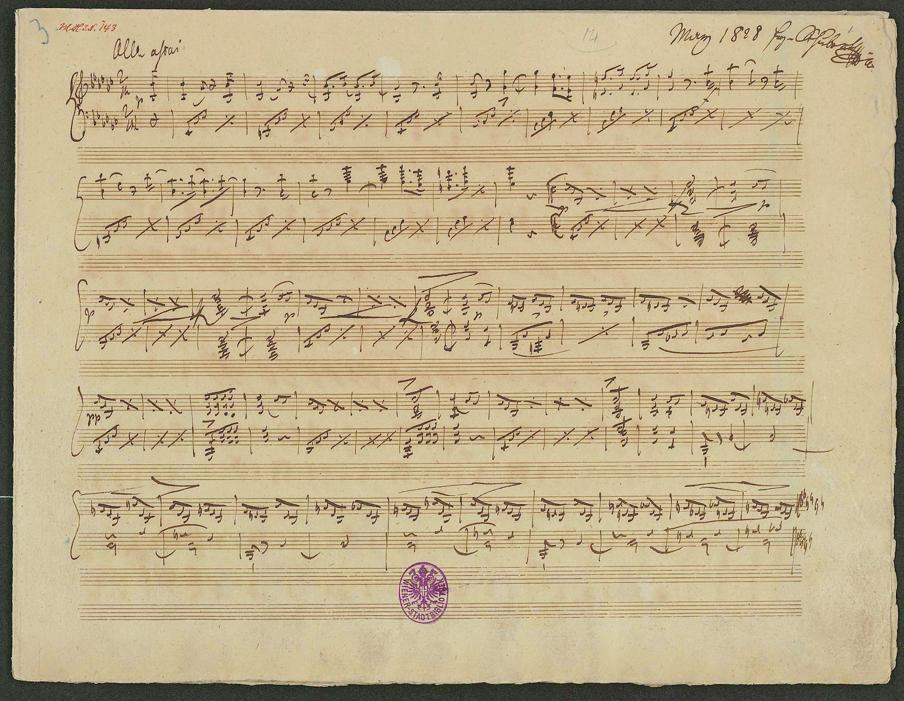 3
M.H. 2N. 143
Allo assai
14
Merz 1828 Frz. Schubert
WIENER-STADTBIBLIOTHEK